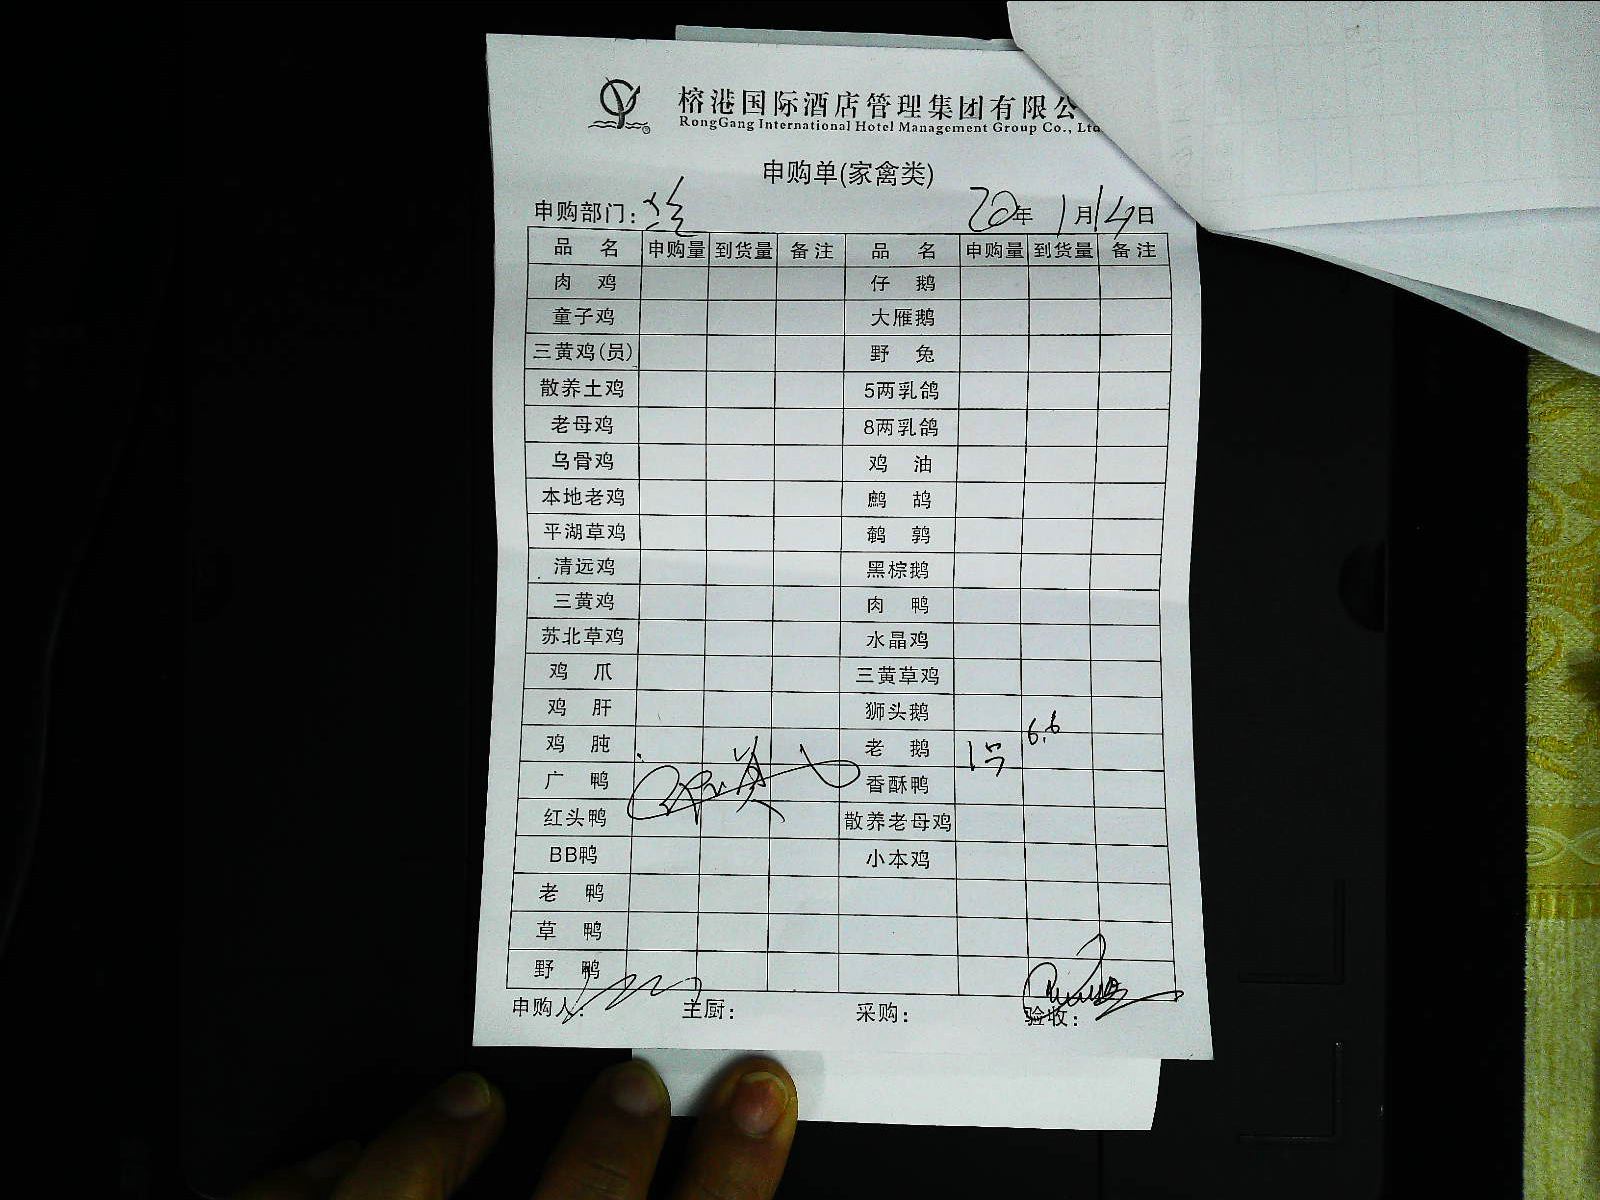 榕港国际酒店管理集团有限公
RongGang International Hotel Management Group Co., Ltd
申购单(家禽类)
申购部门: 20年 1月14日
品 名 申购量 到货量 备注 品 名 申购量 到货量 备注
肉 鸡 仔 鹅
童子鸡 大雁鹅
三黄鸡(员) 野 兔
散养土鸡 5两乳鸽
老母鸡 8两乳鸽
乌骨鸡 鸡 油
本地老鸡 鹧 鸪
平湖草鸡 鹌 鹑
清远鸡 黑棕鹅
三黄鸡 肉 鸭
苏北草鸡 水晶鸡
鸡 爪 三黄草鸡
鸡 肝 狮头鹅
鸡 肫 老 鹅 1只 6.6
广 鸭 香酥鸭
红头鸭 散养老母鸡
BB鸭 小本鸡
老 鸭
草 鸭
野 鸭
申购人: 主厨: 采购: 验收: